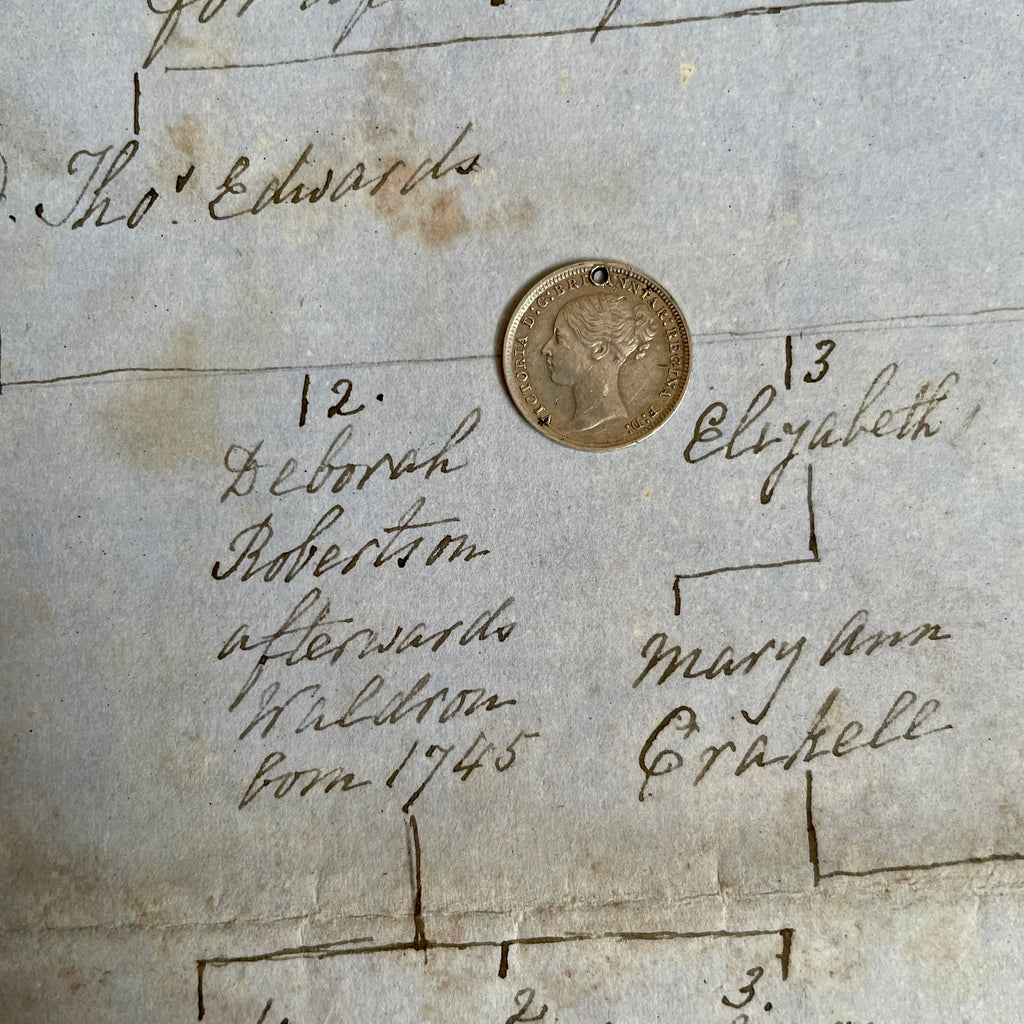 Thos. Edwards
VICTORIA D:G: BRITANNIAR: REGINA F:D:
12.
13
Deborah
Elizabeth
Robertson
afterwards
Mary Ann
Waldron
Crakell
born 1745
2
3.